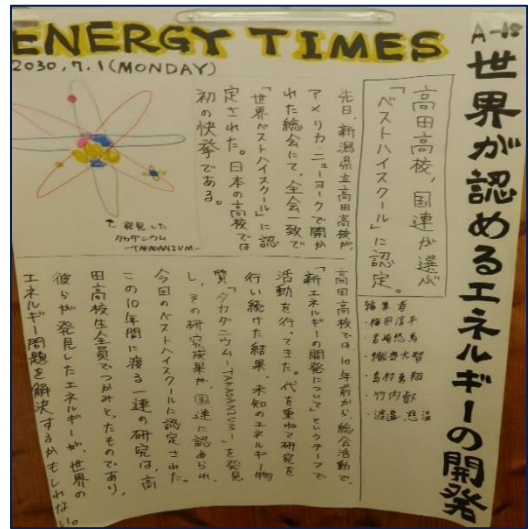 ENERGY TIMES
A-18
2030.7.1(MONDAY)
世界が認めるエネルギーの開発
高田高校、国連が選ぶ
「ベストハイスクール」に認定。
先日、新潟県立高田高校が、
アメリカ・ニューヨークで開か
れた総会にて、全会一致で
「世界ベストハイスクール」に認
定された。日本の高校では
初の快挙である。
発見した
タカダニウム
-TAKADANIUM-
編集者
高田高校では10年前から、総合活動で、
「新エネルギーの開発について」というテーマで
活動を行ってきた。代を重ねて研究を
行い続けた結果、未知のエネルギー物
質「タカダニウム-TAKADANIUM-」を発見
し、その研究成果が、国連に認められ、
今回のベストハイスクールに認定された。
この10年間に渡る一連の研究は、高
田高校生人全員でつかみとったものであり、
彼らが発見したエネルギーが、世界の
エネルギー問題を解決するかもしれない。